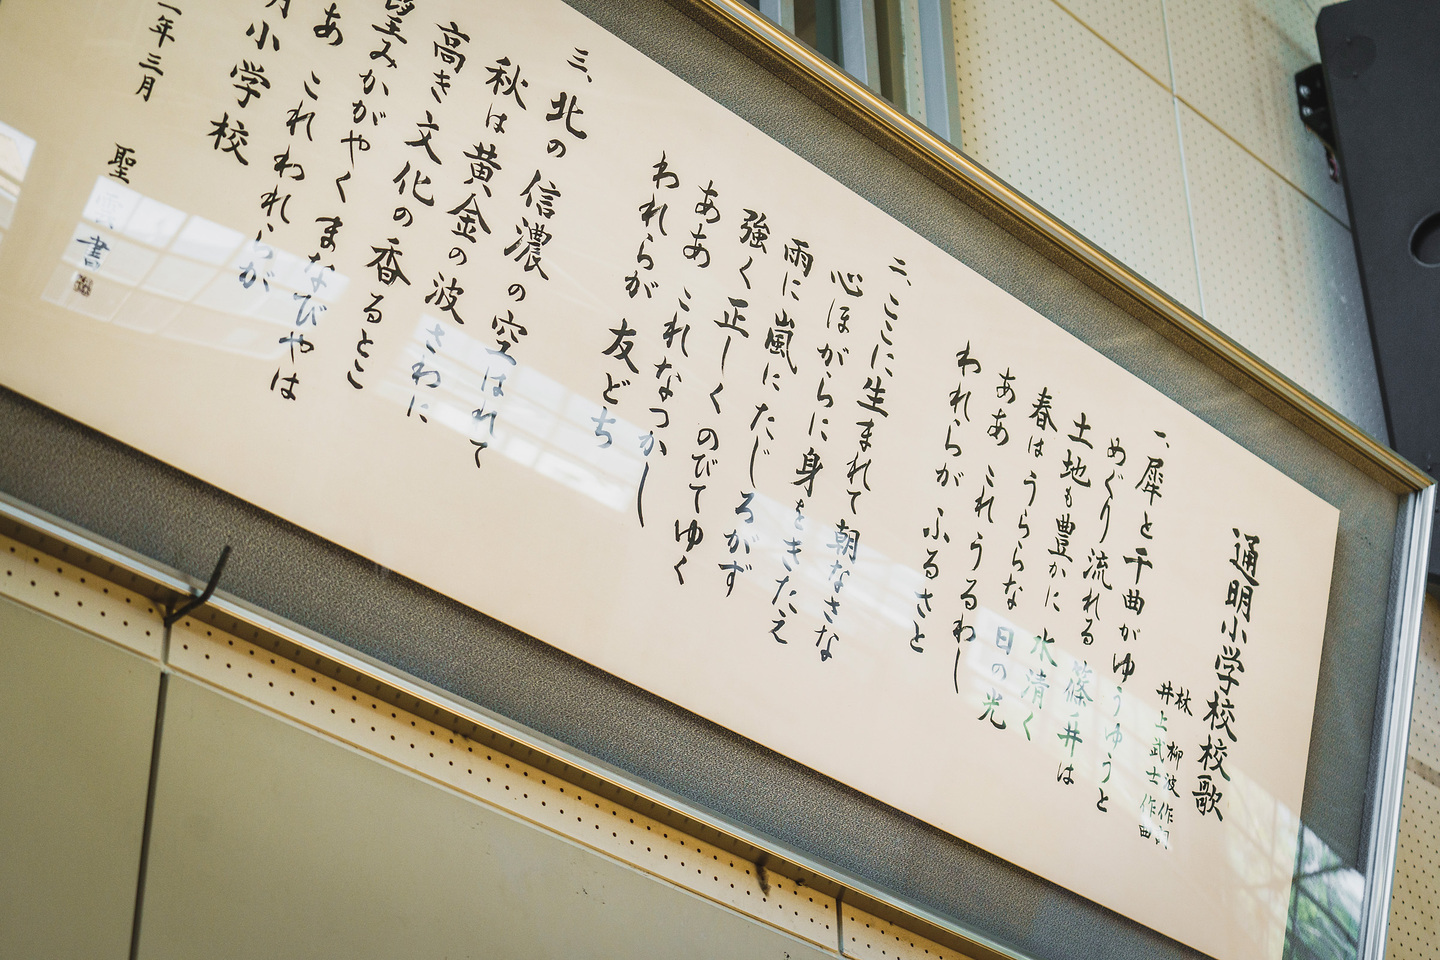 通明小学校校歌
林 柳波 作詞
井上武士 作曲
一、犀と千曲がゆうゆうと
めぐり流れる篠ノ井は
土地も豊かに 水清く
春はうららな 日の光
ああ これ うるわし
われらが ふるさと
二、ここに生まれて 朝なさな
心ほがらに 身をきたえ
雨に嵐に たじろがず
強く正しく のびてゆく
ああ これなつかし
われらが 友どち
三、北の信濃の空はれて
秋は黄金の波さわに
高き文化の香るとこ
望みかがやくまなびやは
あ これ われらが
明小学校
一年三月
聖 書